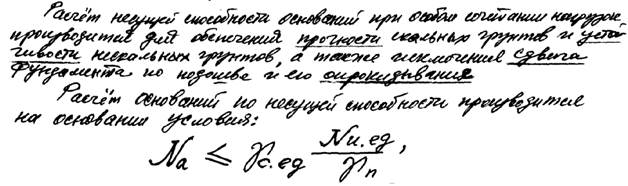 Расчёт несущей способности оснований при особом сочетании нагрузок
производится для обеспечения прочности скальных грунтов и устой-
чивости нескальных грунтов, а также исключения сдвига
фундамента по подошве и его опрокидывания
Расчёт оснований по несущей способности производится
на основании условия:
Nа ≤ γс.eq Nu.eq / γn,